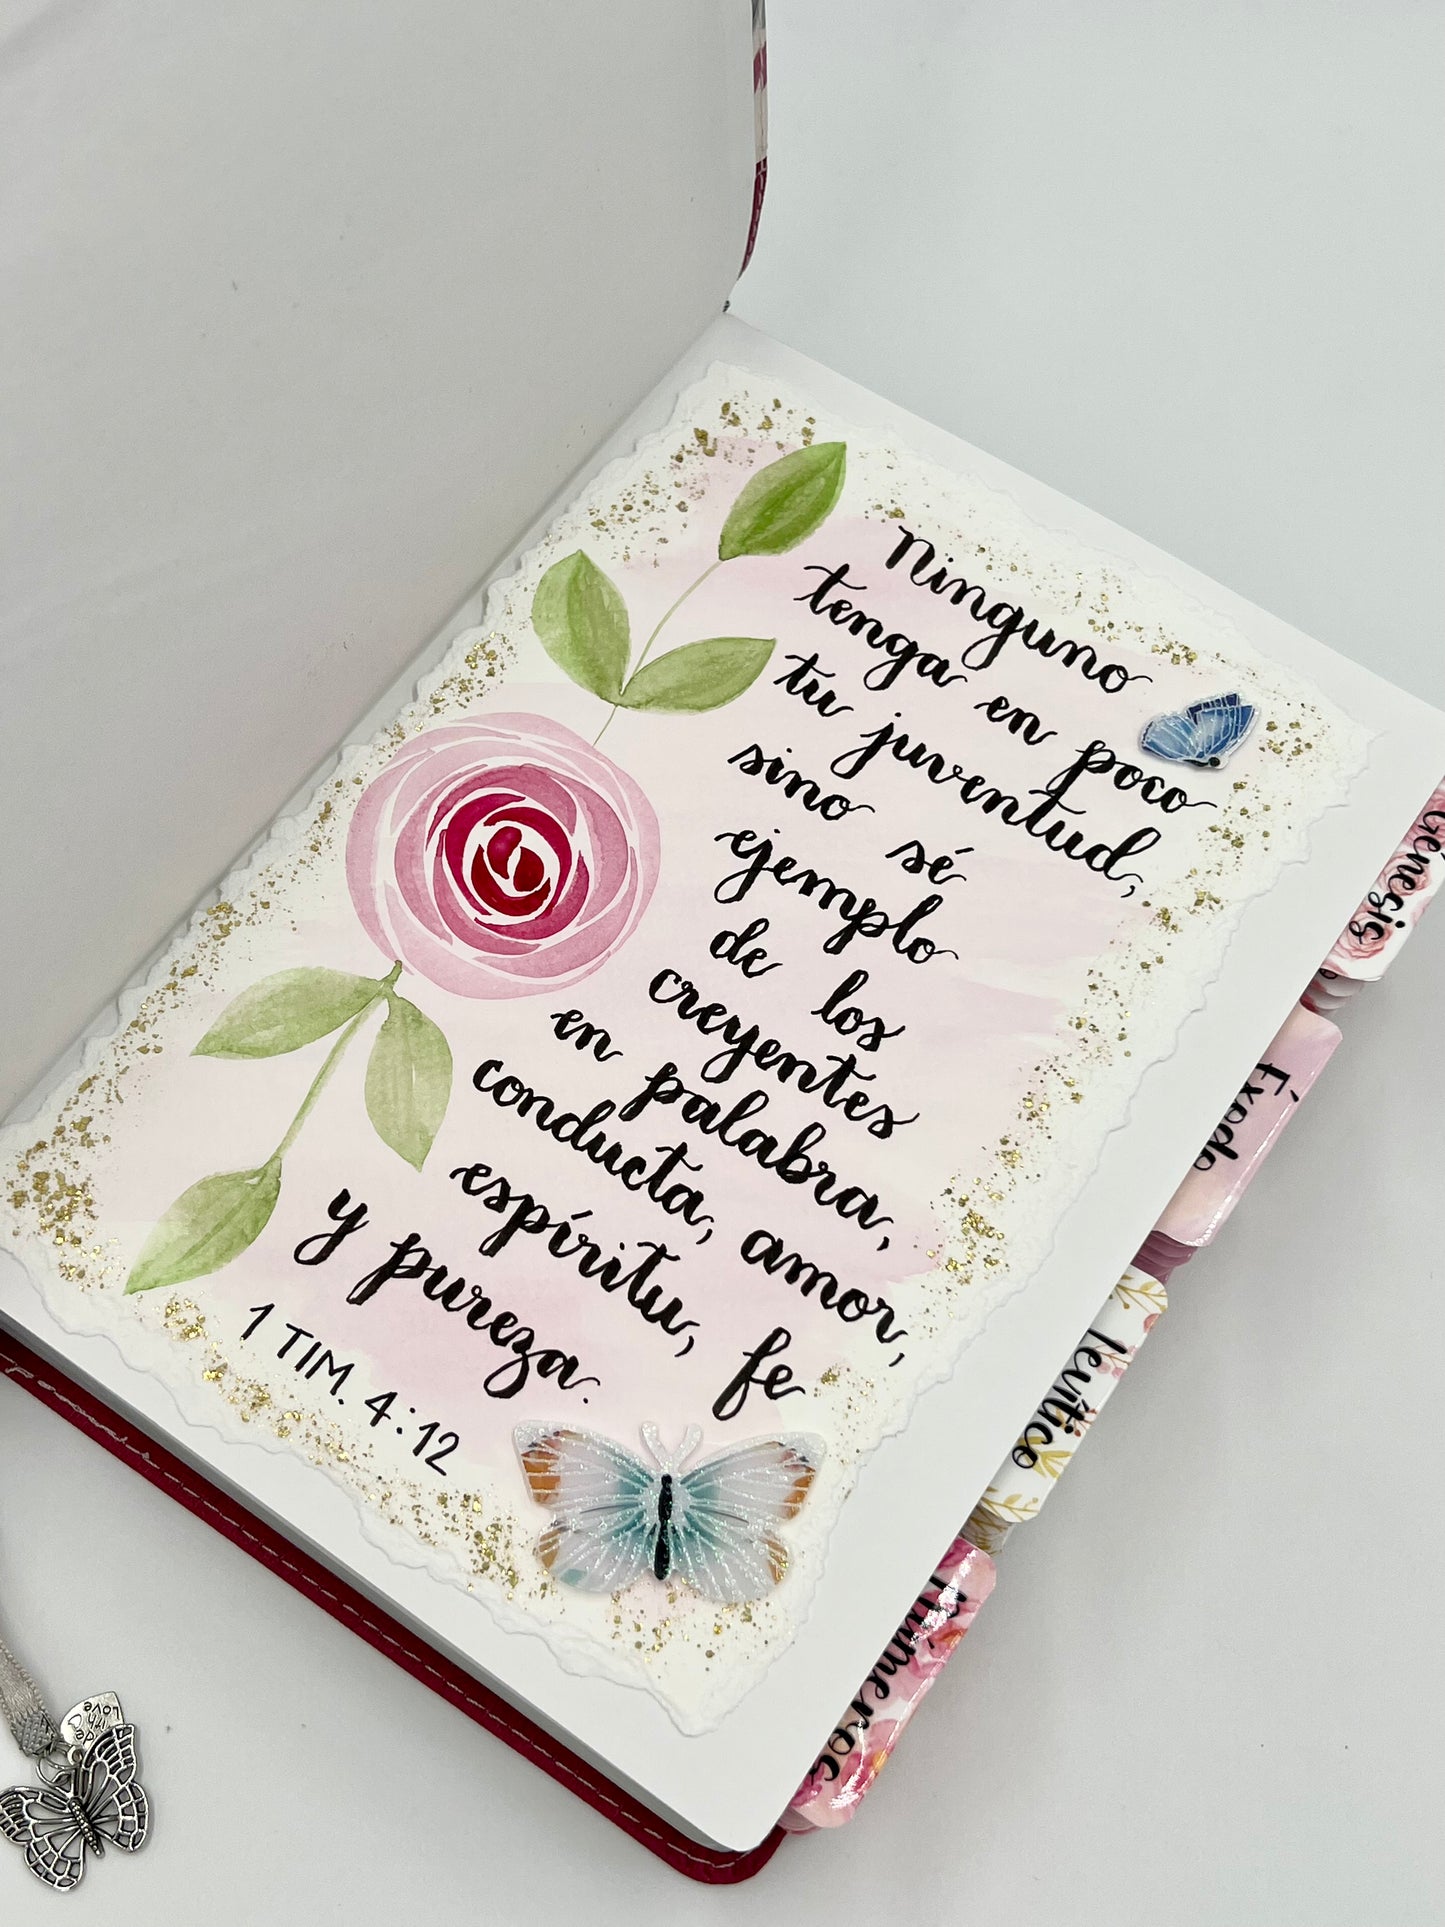 Ninguno
tenga en poco
tu juventud,
sino sé
ejemplo
de los
creyentes
en palabra,
conducta, amor,
espíritu, fe
y pureza.
1 TIM. 4:12
Génesis
Éxodo
Levítico
Números
made
with
Love